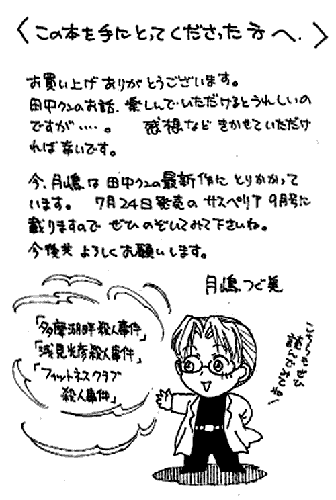 〈この本を手にとってくださった方へ.〉
お買い上げありがとうございます。
田中クンのお話、楽しんでいただけるとうれしいの
ですが‥‥。 感想などきかせていただけ
れば幸いです。
今、月嶋は田中クンの最新作にとりかかって
います。 7月24日発売のサスペリア9月号に
載りますので ぜひのぞいてみて下さいね。
今後共よろしくお願いします。
月嶋つぐ美
「多摩湖畔殺人事件」
「浅見光彦殺人事件」
「フィットネスクラブ
殺人事件」